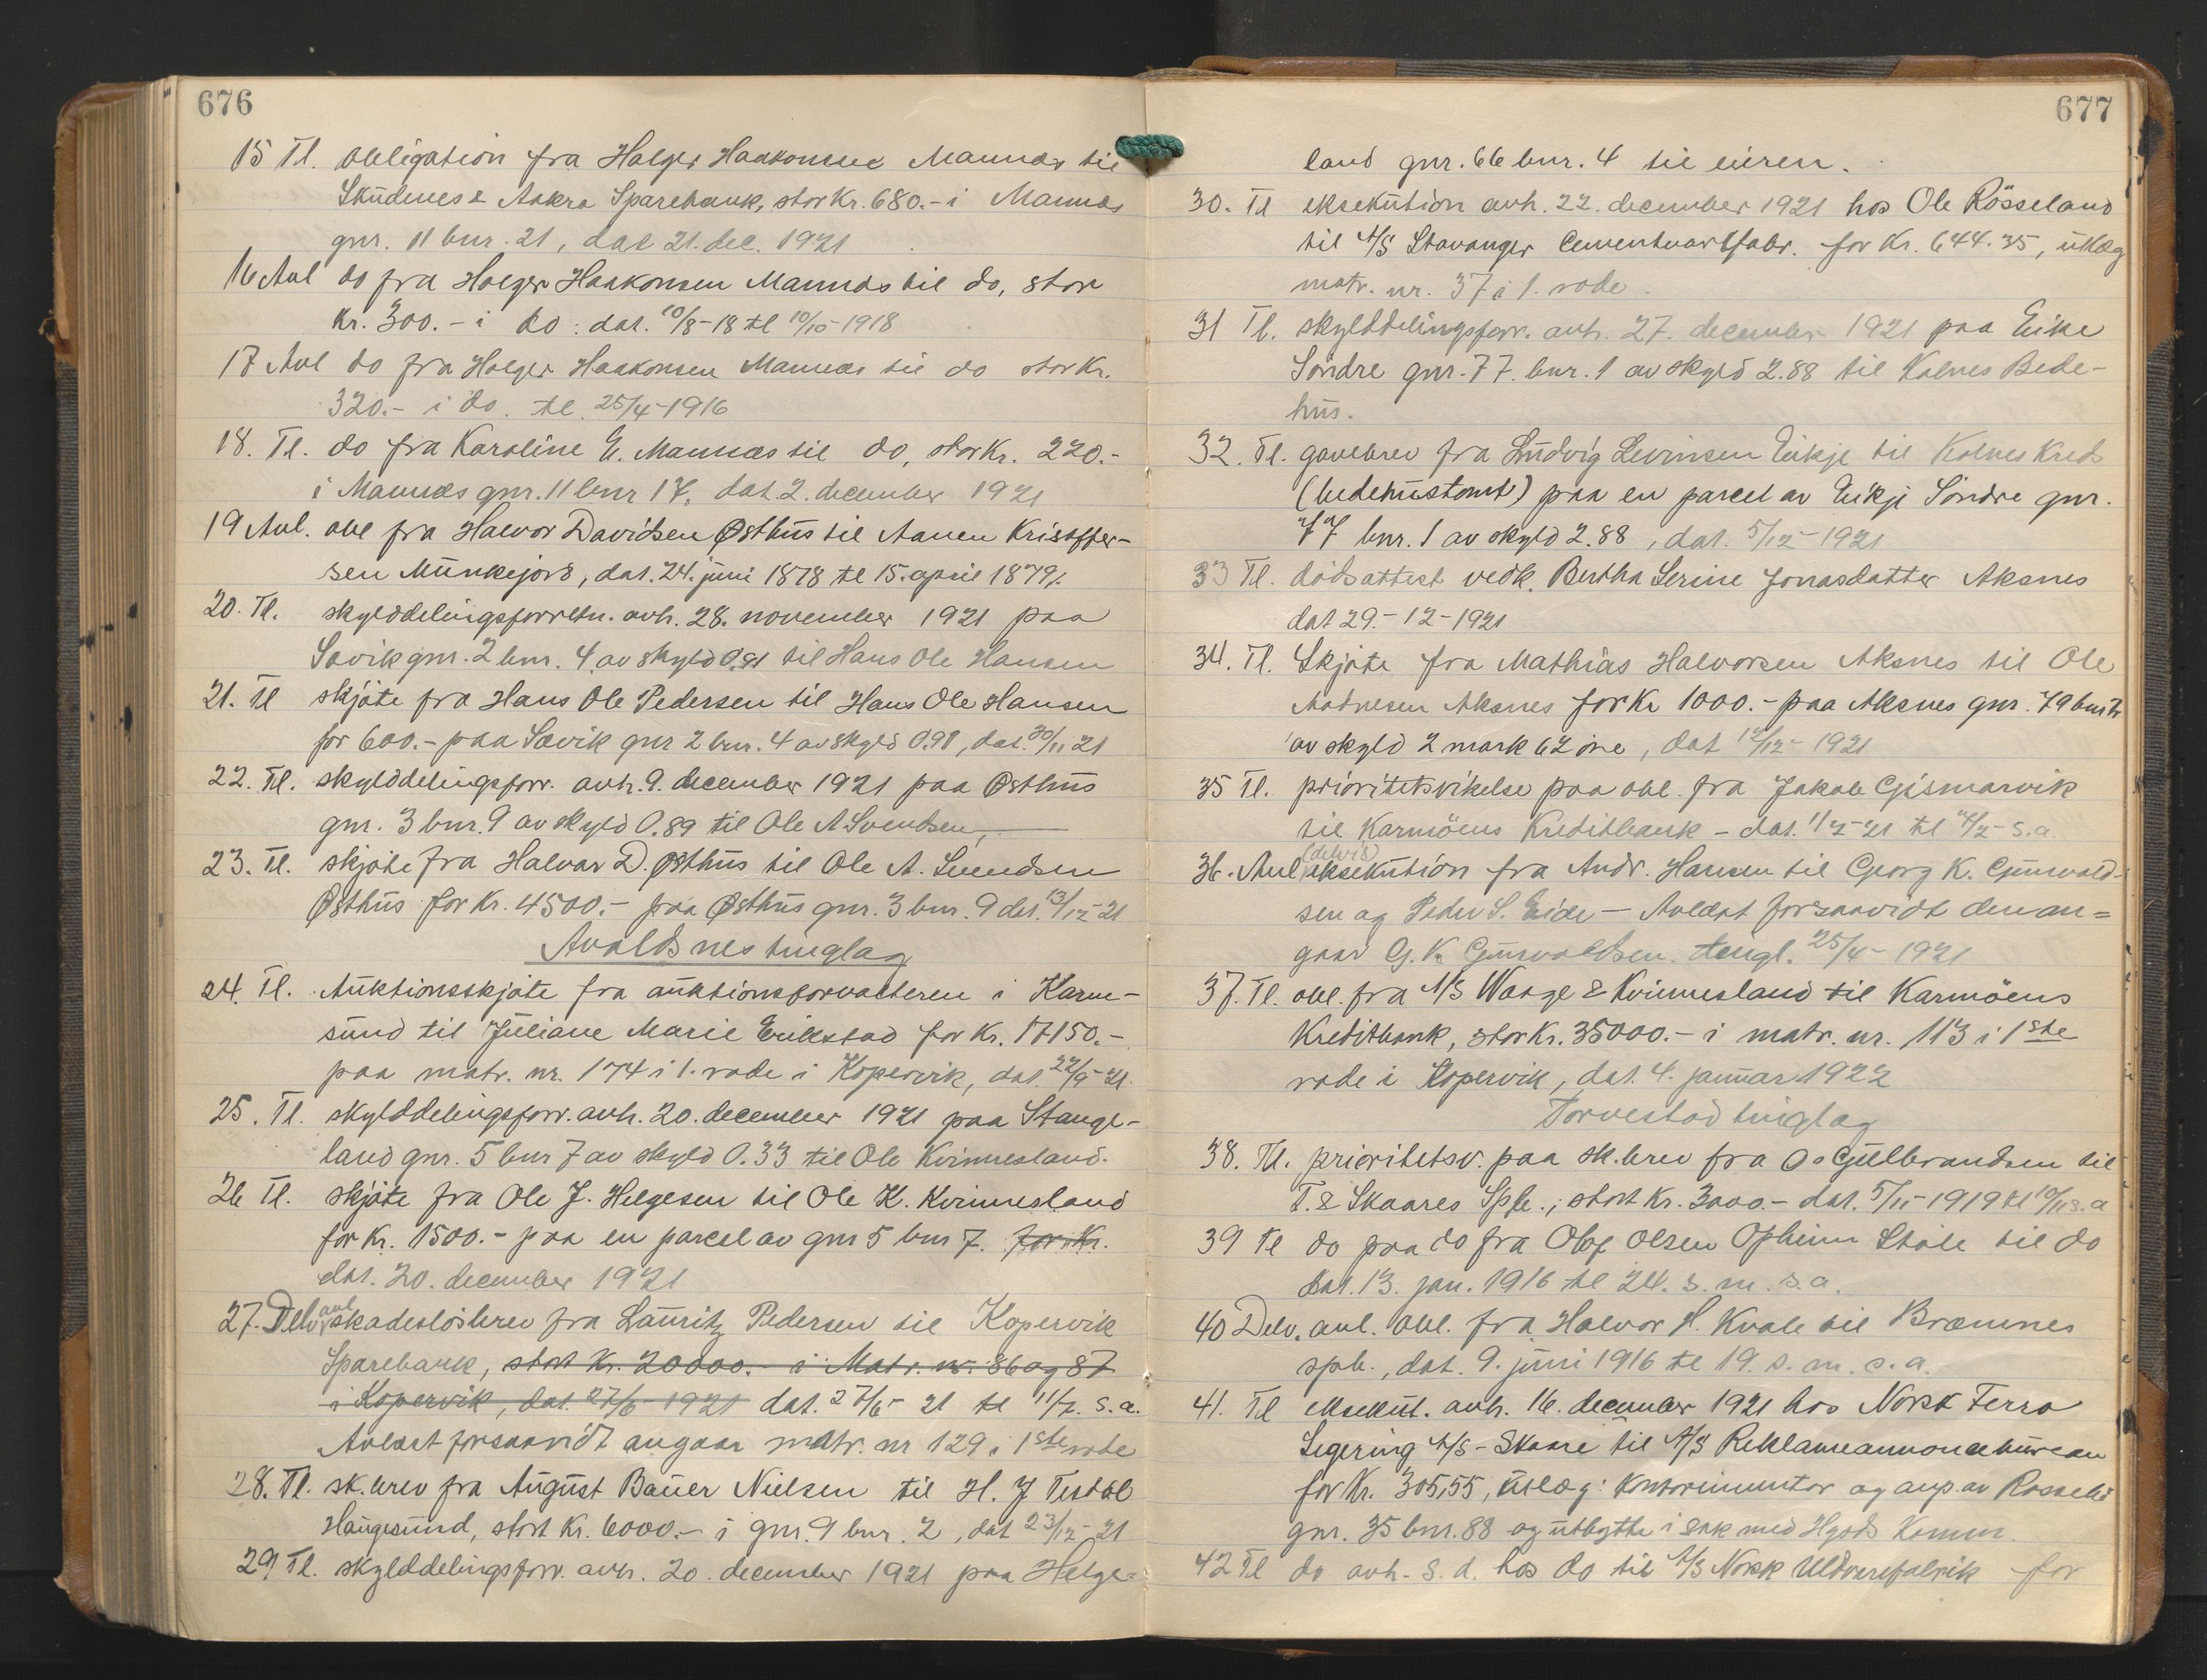 676
15 Tl. obligation fra Holger Haakonsen Mannes til
Skudenes & Aakra Sparebank, stor Kr. 680.- i Mannes
gnr. 11 bnr. 21, dat 21. dec. 1921
16 Avl do fra Holger Haakonsen Mannes til do, stor
kr. 300.- i do: dat. 10/8-18 tl 10/10-1918
17 Avl do fra Holger Haakonsen Mannes til do stor Kr.
320.- i do. tl. 25/4-1916
18. Tl. do fra Karoline E. Mannes til do, stor Kr. 220.-
i Mannes gnr. 11 bnr 17, dat. 2. december 1921
19 Avl. obl fra Halvor Davidsen Østhus til Aanen Kristoffer-
sen Munkejord, dat. 24. juni 1878 tl 15. april 1879.
20. Tl. skylddelingsforretn. avh. 28. november 1921 paa
Sævik gnr. 2 bnr. 4 av skyld 0.81 til Hans Ole Hansen
21. Tl skjøte fra Hans Ole Pedersen til Hans Ole Hansen
for 600.- paa Sævik gnr 2 bnr. 4 av skyld 0.91, dat. 30/11 21
22. Tl. skylddelingsforr. avh. 9. december 1921 paa Østhus
gnr. 3 bnr. 9 av skyld 0.89 til Ole A. Svendsen,
23. Tl. skjøte fra Halvar D. Østhus til Ole A. Svendsen
Østhus for Kr. 4500.- paa Østhus gnr. 3 bnr. 9 dat. 13/12-21
Avaldsnes tinglag
24. Tl. Auktionsskjøte fra auktionsforvalteren i Karm-
sund til Juliane Marie Erikstad for Kr. 17150.-
paa matr. nr. 174 i 1. rode i Kopervik, dat. 22/9-21.
25. Tl. skylddelingsforr. avh. 20. december 1921 paa Stange-
land gnr. 5 bnr 7 av skyld 0.33 til Ole Kvinnesland.
26 Tl. skjøte fra Ole J. Helgesen til Ole K. Kvinnesland
for Kr. 1500.- paa en parcel av gnr 5 bnr 7. for Kr.
dat. 20. december 1921
27. Delv avl skadesløsbrev fra Lauritz Pedersen til Kopervik
Sparebank, stort Kr. 20000.- i Matr. nr. 86 og 87
i Kopervik, dat. 27/6-1921 dat. 27/6-21 tl 11/7. s.a.
Avlæst forsaavidt angaar matr. nr 129 i 1ste rode
28. Tl. sk.brev fra August Bauer Nielsen til H. J Tesdal
Haugesund, stort Kr. 6000.- i gnr. 9 bnr. 2, dat 23/12-21
29 Tl. skylddelingsforr. avh. 20. december 1921 paa Helge-
677
land gnr. 66 bnr. 4 til eieren.
30. Tl eksekution avh. 22. december 1921 hos Ole Røsseland
til A/S Stavanger Cementvarefabr. for Kr. 644.35, utlæg
matr. nr. 37 i 1. rode.
31 Tl. skylddelingsforr. avh. 27. december 1921 paa Eike
Søndre gnr. 77. bnr. 1 av skyld 2.88 til Kolnes Bede-
hus.
32. Tl. gavebrev fra Ludvig Levinsen Eikje til Kolnes Kreds
(bedehustomt) paa en parcel av Eikje Søndre gnr.
77 bnr. 1 av skyld 2.88, dat. 5/12-1921
33 Tl. dødsattest vedk. Bertha Serine Jonasdatter Aksnes
dat 29.-12-1921
34. Tl. Skjøte fra Mathias Halvorsen Aksnes til Ole
Aadnesen Aksnes for Kr 1000.- paa Aksnes gnr. 79 bnr
av skyld 2 mark 62 øre, dat 12/12-1921
35 Tl. prioritetsvikelse paa obl. fra Jakob Gismarvik
til Karmøens Kreditbank - dat. 1/2-21 tl 4/2-s.a.
36. Avl (delvis) eksekution fra Andr. Hansen til Georg K. Gunvald-
sen og Peder S. Eide - Avlæst forsaavidt den an=
gaar G. K. Gunvaldsen. tingl. 25/4-1921
37. Tl. obl. fra A/S Waage & Kvinnesland til Karmøens
Kreditbank, stor Kr. 35000.- i matr. nr. 113 i 1ste
rode i Kopervik, dat. 4. januar 1922
Torvestad tinglag
38. Tl. prioritetsv. paa sk.brev fra O. Gulbrandsen til
T. & Skaares Spb., stort Kr. 3000.- dat. 5/11-1919 tl 10/11 s.a
39 Tl do paa do fra Olaf Olsen Opheim Støle til do
dat. 13. jan. 1916 tl 24. s. m. s. a.
40 Delv. avl. obl. fra Halvor H. Kvale til Bremnes
spb., dat. 9. juni 1916 tl 19. s. m. s. a.
41. Tl eksekut. avh. 16. december 1921 hos Norsk Ferro
Legering A/S - Skaare til A/S Reklameannoncebureau
for Kr. 305,55, utlæg: kontorinventar og anp. av Rossebø
gnr. 35 bnr. 88 og utbytte i sak med Hgsds Komm.
42 Tl do avh. s. d. hos do til A/S Norsk Uldvarefabrik for